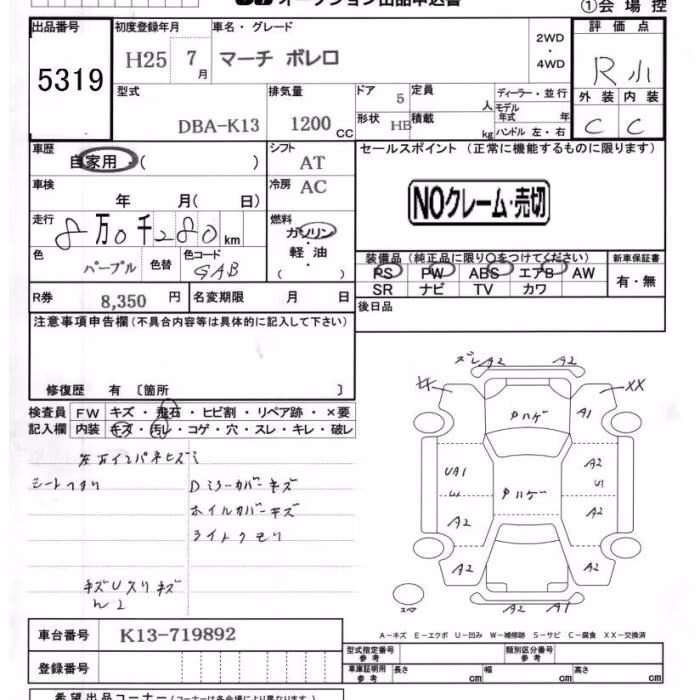 オークション出品申込書
①会場控
出品番号 初度登録年月 車名・グレード 2WD ・ 4WD 評価点
5319 H25 7月 マーチ ボレロ R 小
外装 内装
C C
型式 排気量 ドア 定員 ディーラー・並行
DBA-K13 1200 CC 5 人 モデル年式 年
形状 HB 積載 kg ハンドル 左・右
車歴 自家用・( ) シフト AT セールスポイント (正常に機能するものに限ります)
車検 年 月( 日) 冷房 AC
NOクレーム・売切
走行 8万0千280km 燃料 ガソリン・軽油 ( )
色 パープル 色替 色コード GAB
装備品 (純正品に限り○をつけてください) 新車保証書
PS PW ABS エアB AW 有・無
SR ナビ TV カワ
R券 8,350円 名変期限 月 日 後日品
注意事項申告欄 (不具合内容等は具体的に記入して下さい)
修復歴 有 〔箇所 〕
検査員 FW キズ・飛石・ヒビ割・リペア跡・×要
記入欄 内装 キズ・汚レ・コゲ・穴・スレ・キレ・破レ
シートスタリ
Dミラーカバーキズ
ホイルカバーキズ
ライトクモリ
ズレ A2 A2
XX
A1
クハゲ
UA1 A2
U1
クハゲ
A2 A2
A2 A2
A2 A1
スペア
車台番号 K13-719892
登録番号
A－キズ E－エクボ U－凹み W－補修跡 S－サビ C－腐食 XX－交換済
型式指定番号 参考 類別区分番号 参考
車庫証明用 参考 長さ cm 幅 cm 高さ cm
希望出品コーナー (コーナーは各会場により異なります)